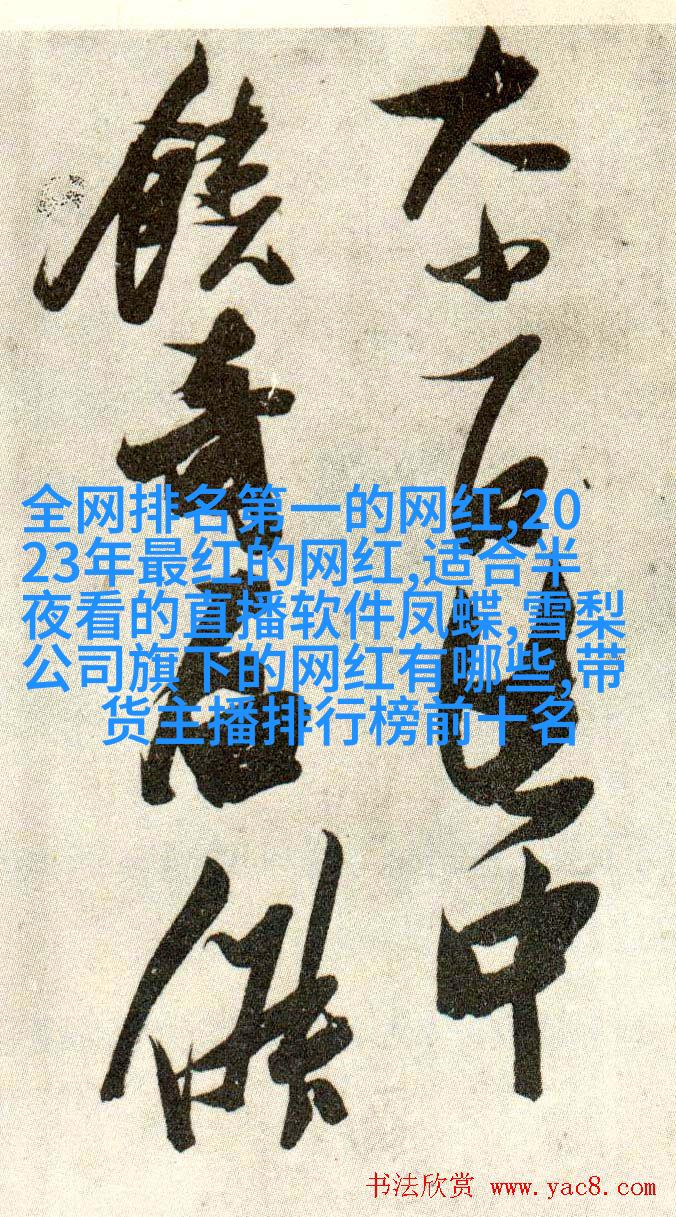 全网排名第一的网红,20
23年最红的网红,适合半
夜看的直播软件凤蝶,雪梨
公司旗下的网红有哪些,带
货主播排行榜前十名
大小石中
饒奇
书法欣赏 www.yac8.com